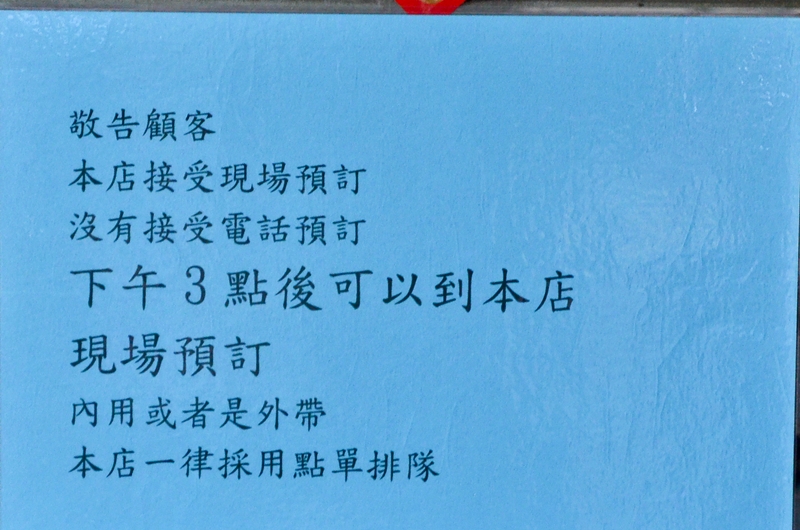 敬告顧客
本店接受現場預訂
沒有接受電話預訂
下午3點後可以到本店
現場預訂
內用或者是外帶
本店一律採用點單排隊